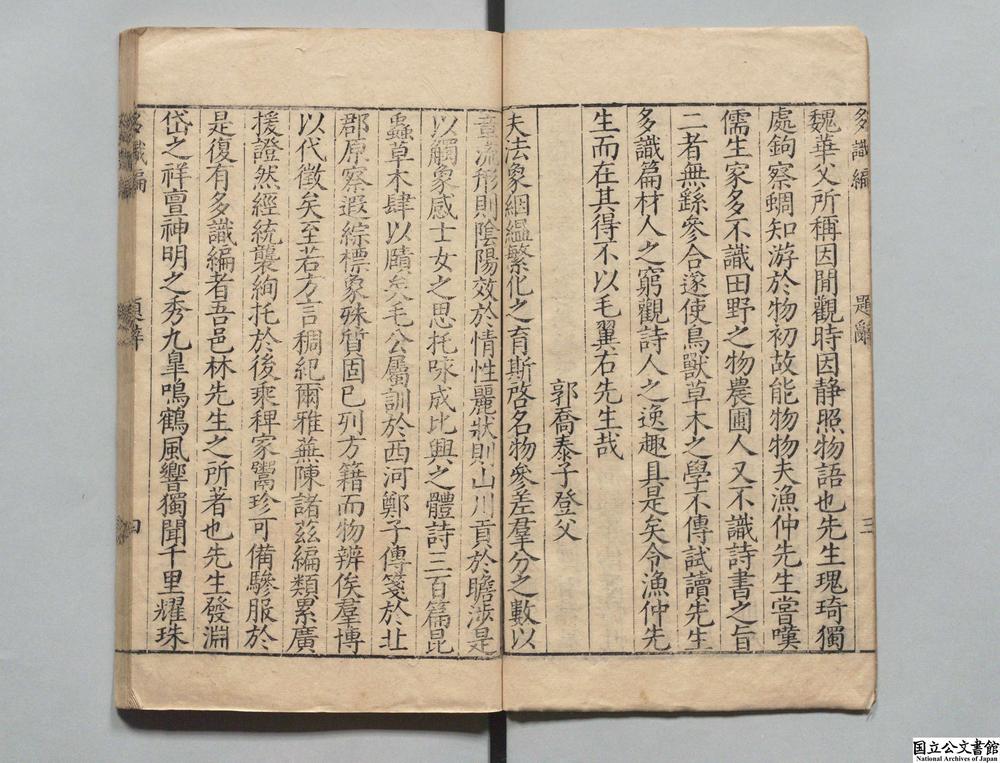 多識編 題辭 三
魏華父所稱因閒觀時因静照物語也先生瑰琦獨
處鉤察蜩知游於物初故能物物夫漁仲先生嘗嘆
儒生家多不識田野之物農圃人又不識詩書之旨
二者無繇參合遂使鳥獸草木之學不傳試讀先生
多識篇材人之窮觀詩人之逸趣具是矣令漁仲先
生而在其得不以毛翼右先生哉
郭喬泰子登父
夫法象絪縕繁化之育斯啓名物參差羣分之數以
章流形則陰陽效於情性麗狀則山川貢於瞻涉是
以觸象感士女之思托咏成比興之體詩三百篇昆
蟲草木肆以賾矣毛公屬訓於西河鄭子傳箋於北
郡原察遐綜標象殊質固已列方籍而物辨俟羣博
以代徵矣至若方言稠紀爾雅蕪陳諸玆編類累廣
援證然經統襲絢托於後乘稗家鬻珍可備驂服於
是復有多識編者吾邑林先生之所著也先生發淵
岱之祥亶神明之秀九皐鳴鶴風響獨聞千里耀珠
多識編 題辭 四
国立公文書館
National Archives of Japan